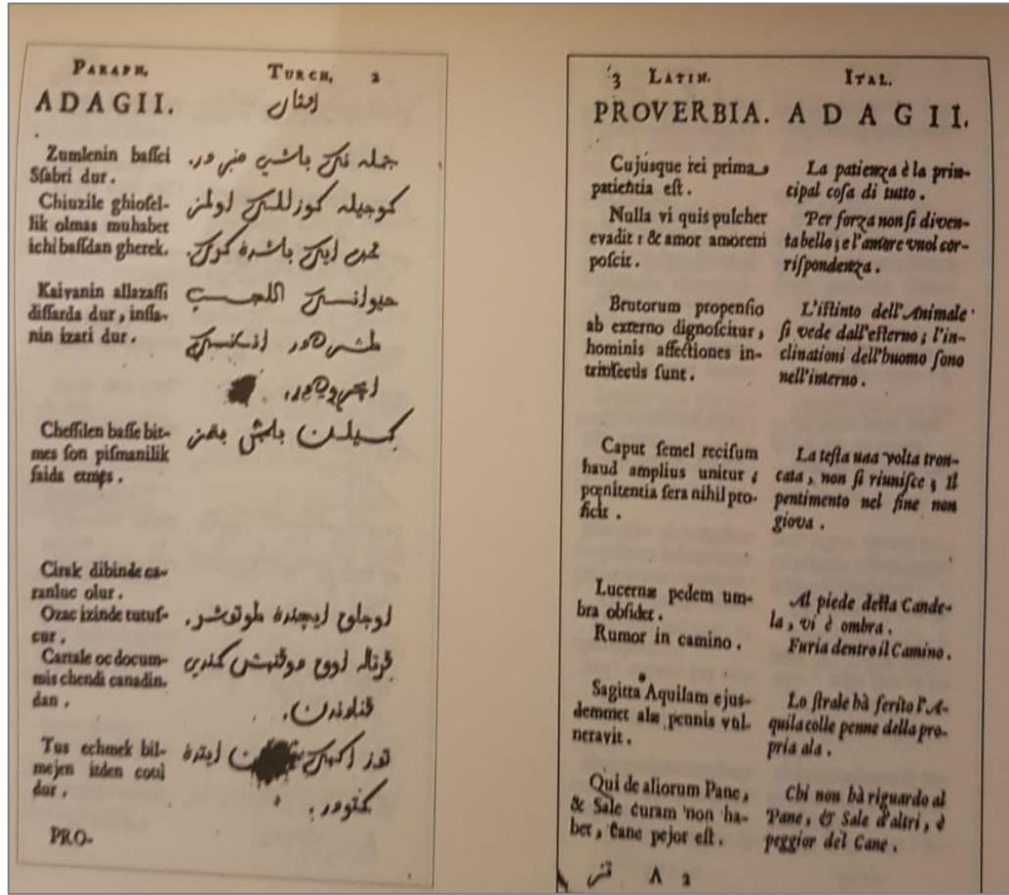 PARAPH.
ADAGII.
Zumlenin baſſci
Sſabri dur.
Chiuzile ghioſel-
lik olmas muhabet
ichi baſſdan gherek.
Kaivanin allazaſſi
diſſarda dur, inſſa-
nin izari dur.
Cheſſilen baſſe bit-
mes ſon piſmanilik
faida etmes.
Cirak dibinde ca-
ranluc olur.
Ozac izinde tutuſ-
cur.
Cartale oc docum-
mis chendi canadin-
dan.
Tus echmek bil-
mejen itden cotu
dur.
PRO-
TURCH. 2
جمله نك باشي صبر در.
كوجيله كوزللك اولمز
باشده كرك.
حيوانك
كسيلن باش بتمز
اوجاق ايچنده طوتوشر.
قرتاله اوق كندي
قنادندن.
توز اكمك ايتدن
كتودر.
3 LATIN.
PROVERBIA.
Cujusque rei prima
patientia eſt.
Nulla vi quis pulcher
evadit: & amor amorem
poſcit.
Brutorum propenſio
ab externo dignoſcitur,
hominis affectiones in-
trinſecùs ſunt.
Caput ſemel reciſum
haud amplius unitur;
pœnitentia ſera nihil pro-
ficit.
Lucernæ pedem um-
bra obſidet.
Rumor in camino.
Sagitta Aquilam ejuſ-
demmet alæ pennis vul-
neravit.
Qui de aliorum Pane,
& Sale curam non ha-
bet, Cane pejor eſt.
A 2
ITAL.
ADAGII.
La patienza è la prin-
cipal coſa di tutto.
Per forza non ſi diven-
ta bello; e l'amore vuol cor-
riſpondenza.
L'iſtinto dell'Animale
ſi vede dall'eſterno; l'in-
clinationi dell'huomo ſono
nell'interno.
La teſta una volta tron-
cata, non ſi riuniſce; Il
pentimento nel fine non
giova.
Al piede della Cande-
la, vi è ombra.
Furia dentro il Camino.
Lo ſtrale hà ferito l'A-
quila colle penne della pro-
pria ala.
Chi non hà riguardo al
Pane, & Sale d'altri, è
peggior del Cane.